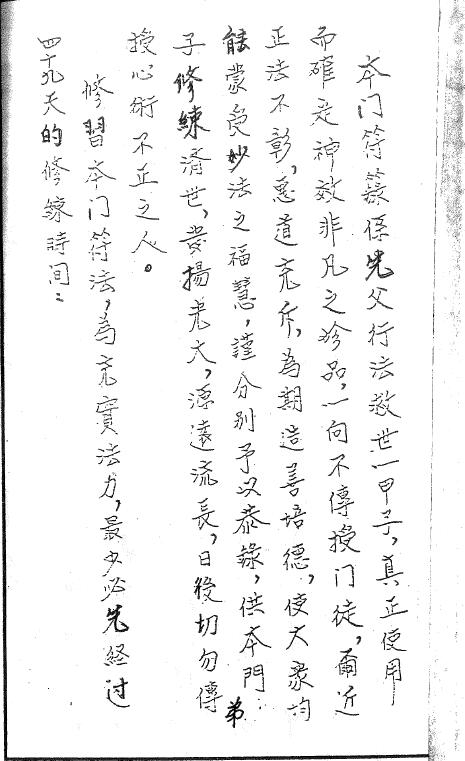 本门符籙係先父行法救世一甲子，真正使用
而確是神效非凡之珍品，一向不傳授门徒，爾近
正法不彰，惡道充斥，為期造善培德，使大衆均
能蒙受妙法之福慧，謹分别予以恭錄，供本門弟
子修練濟世，發揚光大，源遠流長，日後切勿傳
授心術不正之人。
修習本门符法，為充實法力，最少必先经过
四十九天的修鍊時间：